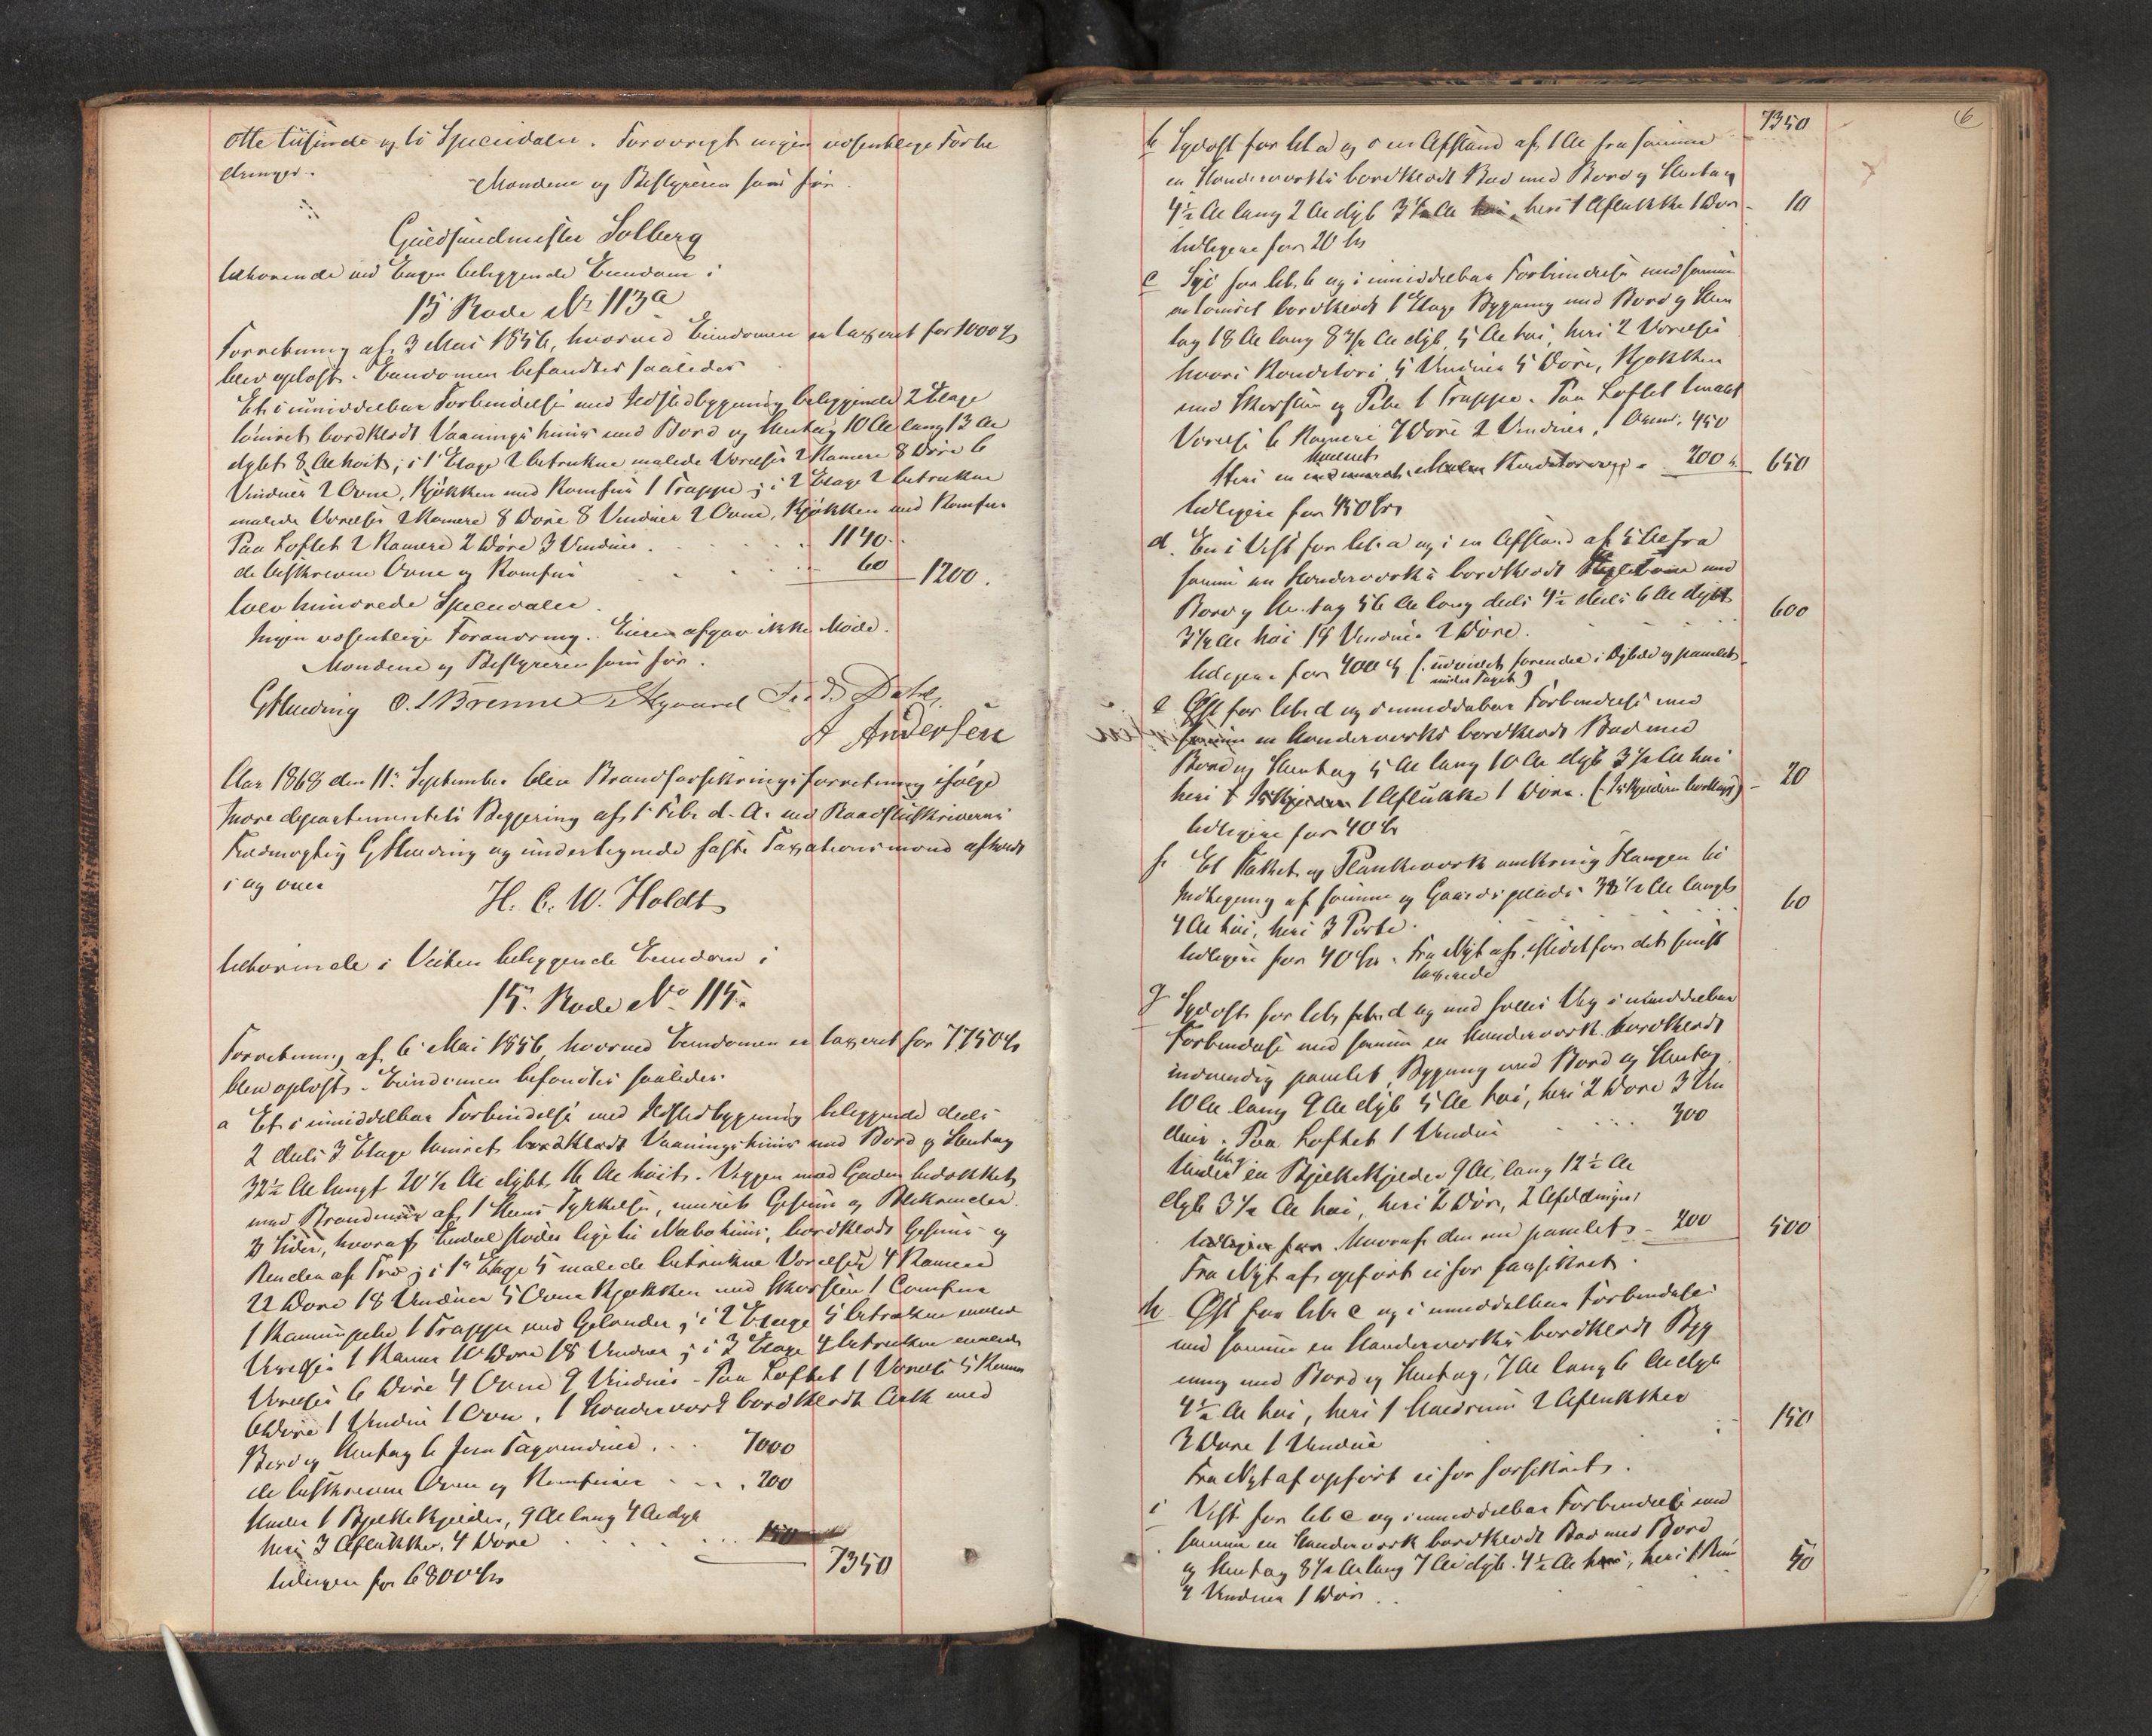 otte tusinde og ti Speciedaler. Forøvrigt ingen væsentlige Forbe
dringer.
Mændene og Bestyreren som før.
Guldsmedmester Solberg
tilhørende ved Engen beliggende Eiendom i
15 Rode No 113a
Forretning af 3 Mai 1856, hvorved Eiendommen er taxeret for 1000
blev oplæst. Eiendommen befandtes saaledes
Et i umiddelbar Forbindelse med Nedstedbygning beliggende 2 Etage
tømret bordklædt Vaaningshuus med Bord og Steentag 10 Al langt 13 Al
dybt 8 Al høit; i 1 Etage 2 betrukne malede Værelser 2 Kamere 8 Døre 6
Vinduer 2 Ovne, Kjøkken med Komfur 1 Trappe; i 2 Etage 2 betrukne
malede Værelser 2 Kamere 8 Døre 8 Vinduer 2 Ovne, Kjøkken med Komfur
Paa Loftet 2 Kamere 2 Døre 3 Vinduer . 1140
de beskrevne Ovne og Komfur 60 1200.
tolv hundrede Speciedaler.
Ingen væsentlige Forandring. Eieren afgav ikke Møde.
Mændene og Bestyreren som før.
O. L Brenne Fredr Dahl
A Andersen
Aar 1868 den 11 September blev Brandforsikringsforretning ifølge
Indredepartementets Begjæring af 1 Febr d. A. ved Raadstueskriverens
Fuldmægtig og undertegnede faste Taxationsmænd afholdt
i og over
H. C. W. Holdt
tilhørende i Veiten beliggende Eiendom i
15. Rode No 115.
Forretning af 6 Mai 1856, hvorved Eiendommen er taxeret for 7750
blev oplæst. Eiendommen befandtes saaledes.
a Et i umiddelbar Forbindelse med Nedstedbygning beliggende deels
2 deels 3 Etage tømret bordklædt Vaaningshuus med Bord og Steentag
32½ Al langt 20½ Al dybt 16 Al høit. Væggen mod Gaden bedækket
med Brandmuur af 1 Steens Tykkelse, muret Gesims og Blikrender
3 Sider, hvoraf Endeel støder lige til Nabohuus, bordklædt Gesims og
Renden af Træ; i 1ste Etage 5 malede betrukne Værelser 4 Kamere
22 Døre 18 Vinduer 5 Ovne Kjøkken med Skorsteen 1 Comfur
1 Kaminpibe 1 Trappe med Gelænder; i 2 Etage 5 betrukne malede
Værelser 1 Kamer 10 Døre 18 Vinduer; i 3 Etage 4 betrukne malede
Værelser 6 Døre 4 Ovne 9 Vinduer. Paa Loftet 1 Værelse 5 Kamre
6 Døre 1 Vindue 1 Ovn. 1 Standerværk bordklædt Ark med
Bord og Steentag 6 Jern Tagvinduer . . . 7000
de beskrevne Ovne og Komfurer . . . 200
Under 1 Bjelkekjelder, 9 Al lang 4 Al dyb
heri 3 Aflukker, 4 Døre . . . 150
tidligere for 6800 7350
6
7350
b Sydost for litr a og i en Afstand af 1 Al fra samme
en Standerværks bordklædt Bod med Bord og Steentag
4½ Al lang 2 Al dyb 3½ Al høi, heri 1 Aflukke 1 Dør 10
tidligere for 20
c Syd for litr b og i umiddelbar Forbindelse med samme
en tømret bordklædt 1 Etage Bygning med Bord og Steen
tag 18 Al lang 8¾ Al dyb, 5 Al høi, heri 2 Værelser
hvori Konditori 5 Vinduer 5 Døre, Kjøkken
med Skorsteen og Pibe 1 Trappe. Paa Loftet 1 malet
Værelse 6 Kamere 7 Døre 2 Vinduer, 1 450
muret
Heri en Konditorovn . 200 650
tidligere for 450
d. En i Vest for litr a og i en Afstand af 5 Al fra
samme en Standerværks bordklædt Keglebane med
Bord og Steentag 56 Al lang deels 4½ deels 6 Al dyb
3½ Al høi 18 Vinduer 2 Døre. 600
tidligere for 400 (udvidet forendeel i Dybde og panelet
under Taget)
e Øst for litr d og i umiddelbar Forbindelse med
samme en Standerværks bordklædt Bod med
Bord og Steentag 5 Al lang 10 Al dyb 3½ Al høi
heri 1 Iiskjelder 1 Aflukke 1 Døre. (Iiskjelderen borttaget) 20
tidligere for 40
f. Et Stakit og Plankeværk omkring Haugen til
Indhegning af samme og Gaardspladsen 38½ Al langt
4 Al høi, heri 3 Porte. 60
tidligere for 40. Fra Nyt af istedetfor det sidst
taxerede
g Sydost for litr d og med fælles Væg i umiddelbar
Forbindelse med samme en Standerværk bordklædt
indvendig panelet Bygning med Bord og Steentag
10 Al lang 9 Al dyb 5 Al høi, heri 2 Døre 3 Vin
duer. Paa Loftet 1 Vindue . . . 300
Under en Bjelkekjelder 9 Al lang 12½ Al
dyb 3½ Al høi, heri 2 Dør, 2 Afdelinger
tidligere for hvoraf den ene panelet 200 500
Fra Nyt af opført ei før forsikret.
h Øst for litr c og i umiddelbar Forbindelse
med samme en Standerværks bordklædt Byg
ning med Bord og Steentag, 7 Al lang 6 Al dyb
4½ Al høi, heri 1 2 Aflukker
3 Døre 1 Vindue 150
Fra Nyt af opført ei før forsikret.
i Vest for litr c og i umiddelbar Forbindelse med
samme en Standerværk bordklædt Bod med Bord
og Steentag 8½ Al lang 7 Al dyb. 4½ Al høi, heri 1 Rum
2 Vinduer 1 Dør . . 50